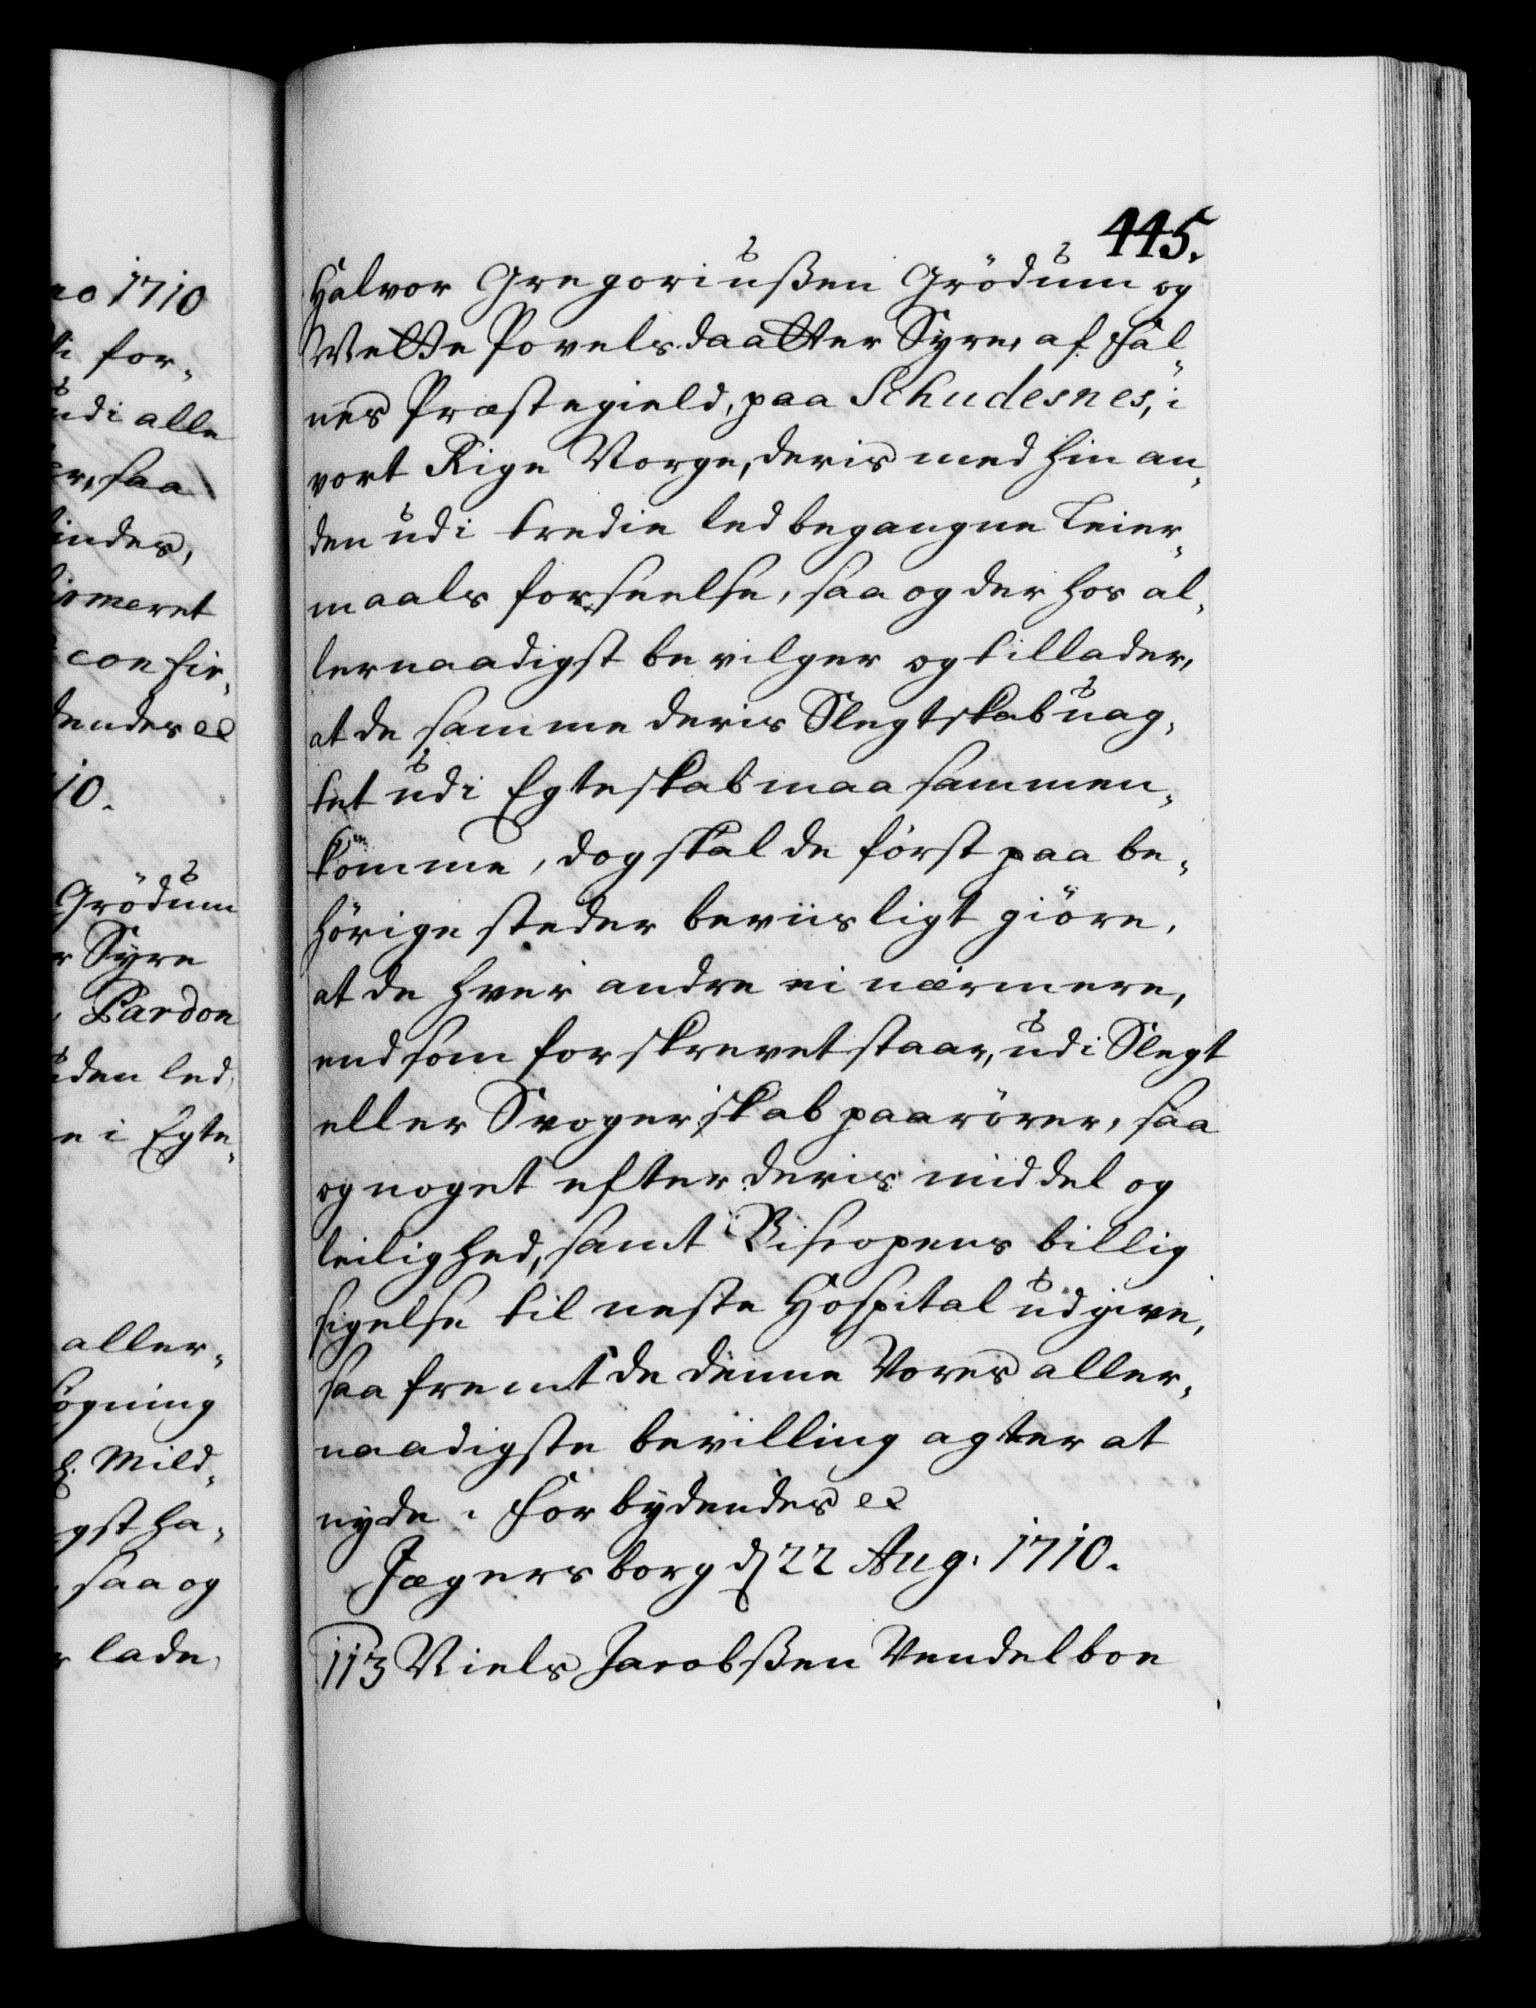 no 1710
for-
udi alle
er, saa
findes,
firmeret
confir-
dendes ec
10.
Grödum
r Syre
Pardon
den led
e i Egte-
aller-
søgning
Mild-
gst ha-
saa og
lade
445.
Halvor Gregoriußen Grödum og
Mette Povelsdaatter Syre, af Fal-
nes Præstegield, paa Schudesnes, i
vort Rige Norge, deris med hin an-
den udi tredie led begangne Leier-
maals forseelse, saa og der hos al-
lernaadigst bevilger og tillader,
at de samme deris Slegtskab uag-
tet udi Egteskab maa sammen-
komme, dog skal de först paa be-
hörige steder beviisligt giöre,
at de hver andre ei nærmere,
end som forskrevet staar, udi Slegt
eller Svogerskab paarörer, saa
og noget efter deris middel og
leilighed, samt Biscopens billig
sigelse til neste Hospital udgive,
saa fremt de denne Vores aller-
naadigste bevilling agter at
nyde. Forbydendes ec
Jægersborg d 22 Aug. 1710.
113 Niels Jacobßen Vendelboe